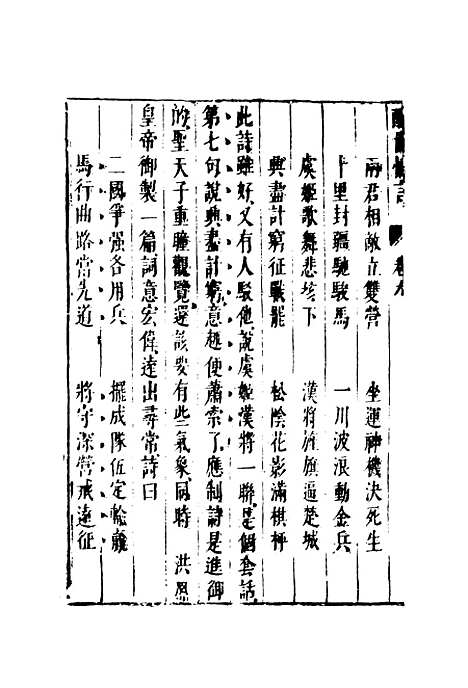 醒世恒言　卷九
兩君相敵立雙營　坐運神機決死生
十里封疆馳駿馬　一川波浪動金兵
虞姬歌舞悲垓下　漢將旌旗逼楚城
興盡計窮征戰罷　松陰花影滿棋枰
此詩雖好又有人駁他說虞姬漢將一聯是個套話
第七句說興盡計窮意趣便蕭索了應制詩是進御
的聖天子重瞳觀覽還該要有些氣象同時　洪熙
皇帝御製一篇詞意宏偉遠出尋常詩曰
二國爭强各用兵　擺成隊伍定輸贏
馬行曲路當先道　將守深營戒遠征